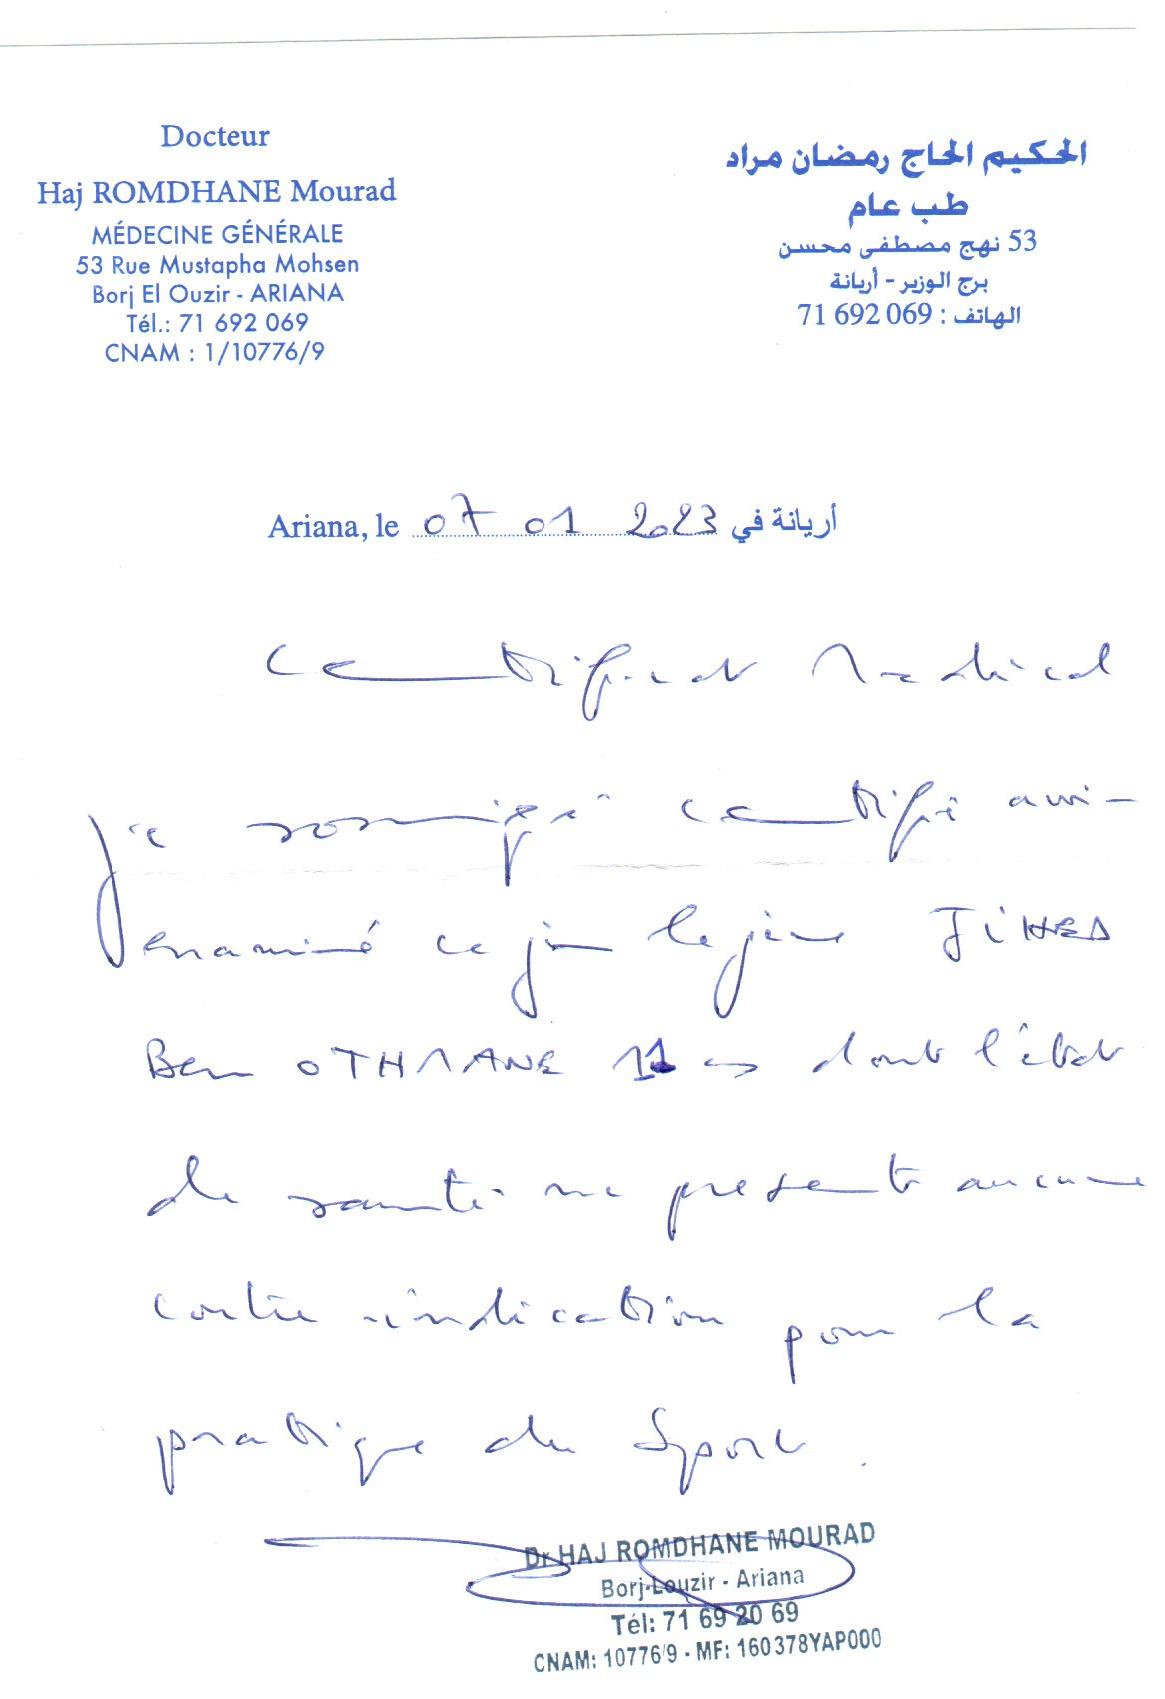 Docteur
Haj ROMDHANE Mourad
MÉDECINE GÉNÉRALE
53 Rue Mustapha Mohsen
Borj El Ouzir - ARIANA
Tél.: 71 692 069
CNAM : 1/10776/9
الحكيم الحاج رمضان مراد
طب عام
53 نهج مصطفى محسن
برج الوزير - أريانة
الهاتف : 71 692 069
Ariana, le 07 01 2023 أريانة في
Certificat Medical
je soussigné certifie avoir
examiné ce jour le jeune JIHED
Ben OTHMANE 11 ans dont l'état
de santé ne présente aucune
contre indication pour la
pratique du Sport.
Dr HAJ ROMDHANE MOURAD
Borj-Louzir - Ariana
Tél: 71 69 20 69
CNAM: 10776/9 - MF: 160378YAP000